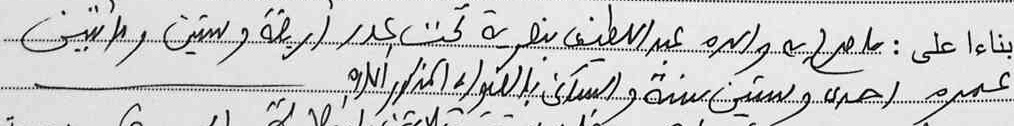 بناءا على : ما صرح به والده عبد اللطيف بنضرية تحت عدد أربعة وستين ومائتين
عمره احدى وستين سنة والساكن بالعنوان المذكور أعلاه